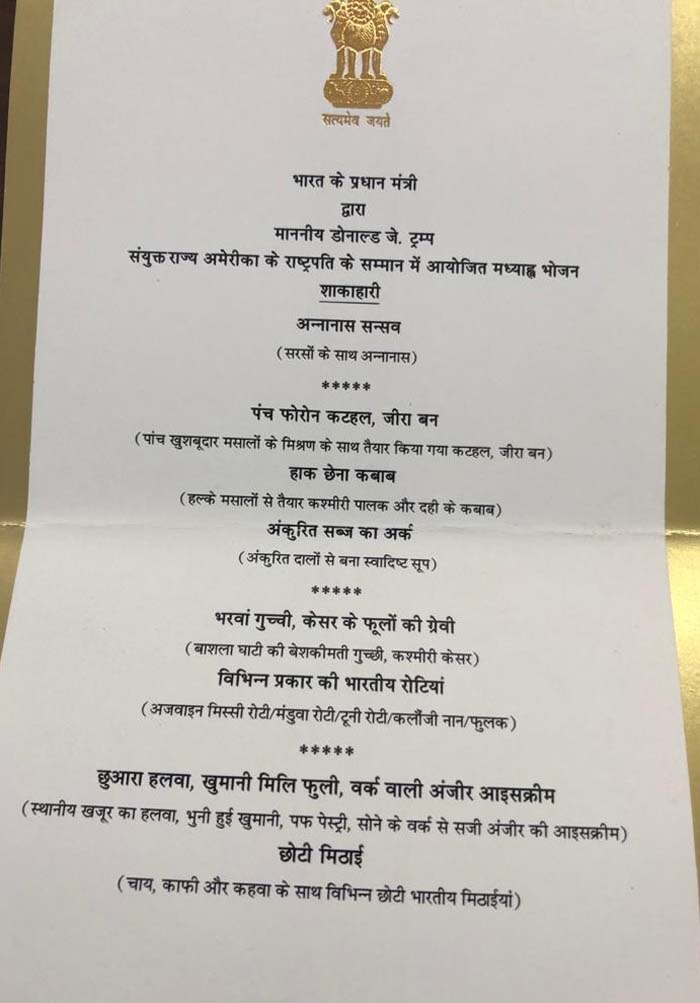 सत्यमेव जयते
भारत के प्रधान मंत्री
द्वारा
माननीय डोनाल्ड जे. ट्रम्प
संयुक्त राज्य अमेरीका के राष्ट्रपति के सम्मान में आयोजित मध्याह्न भोजन
शाकाहारी
अन्नानास सन्सव
(सरसों के साथ अन्नानास)
*****
पंच फोरोन कटहल, जीरा बन
(पांच खुशबूदार मसालों के मिश्रण के साथ तैयार किया गया कटहल, जीरा बन)
हाक छेना कबाब
(हल्के मसालों से तैयार कश्मीरी पालक और दही के कबाब)
अंकुरित सब्ज का अर्क
(अंकुरित दालों से बना स्वादिष्ट सूप)
*****
भरवां गुच्ची, केसर के फूलों की ग्रेवी
(बाशला घाटी की बेशकीमती गुच्छी, कश्मीरी केसर)
विभिन्न प्रकार की भारतीय रोटियां
(अजवाइन मिस्सी रोटी/मंडुवा रोटी/टूनी रोटी/कलौंजी नान/फुलक)
*****
छुआरा हलवा, खुमानी मिलि फुली, वर्क वाली अंजीर आइसक्रीम
(स्थानीय खजूर का हलवा, भुनी हुई खुमानी, पफ पेस्ट्री, सोने के वर्क से सजी अंजीर की आइसक्रीम)
छोटी मिठाई
(चाय, काफी और कहवा के साथ विभिन्न छोटी भारतीय मिठाईयां)